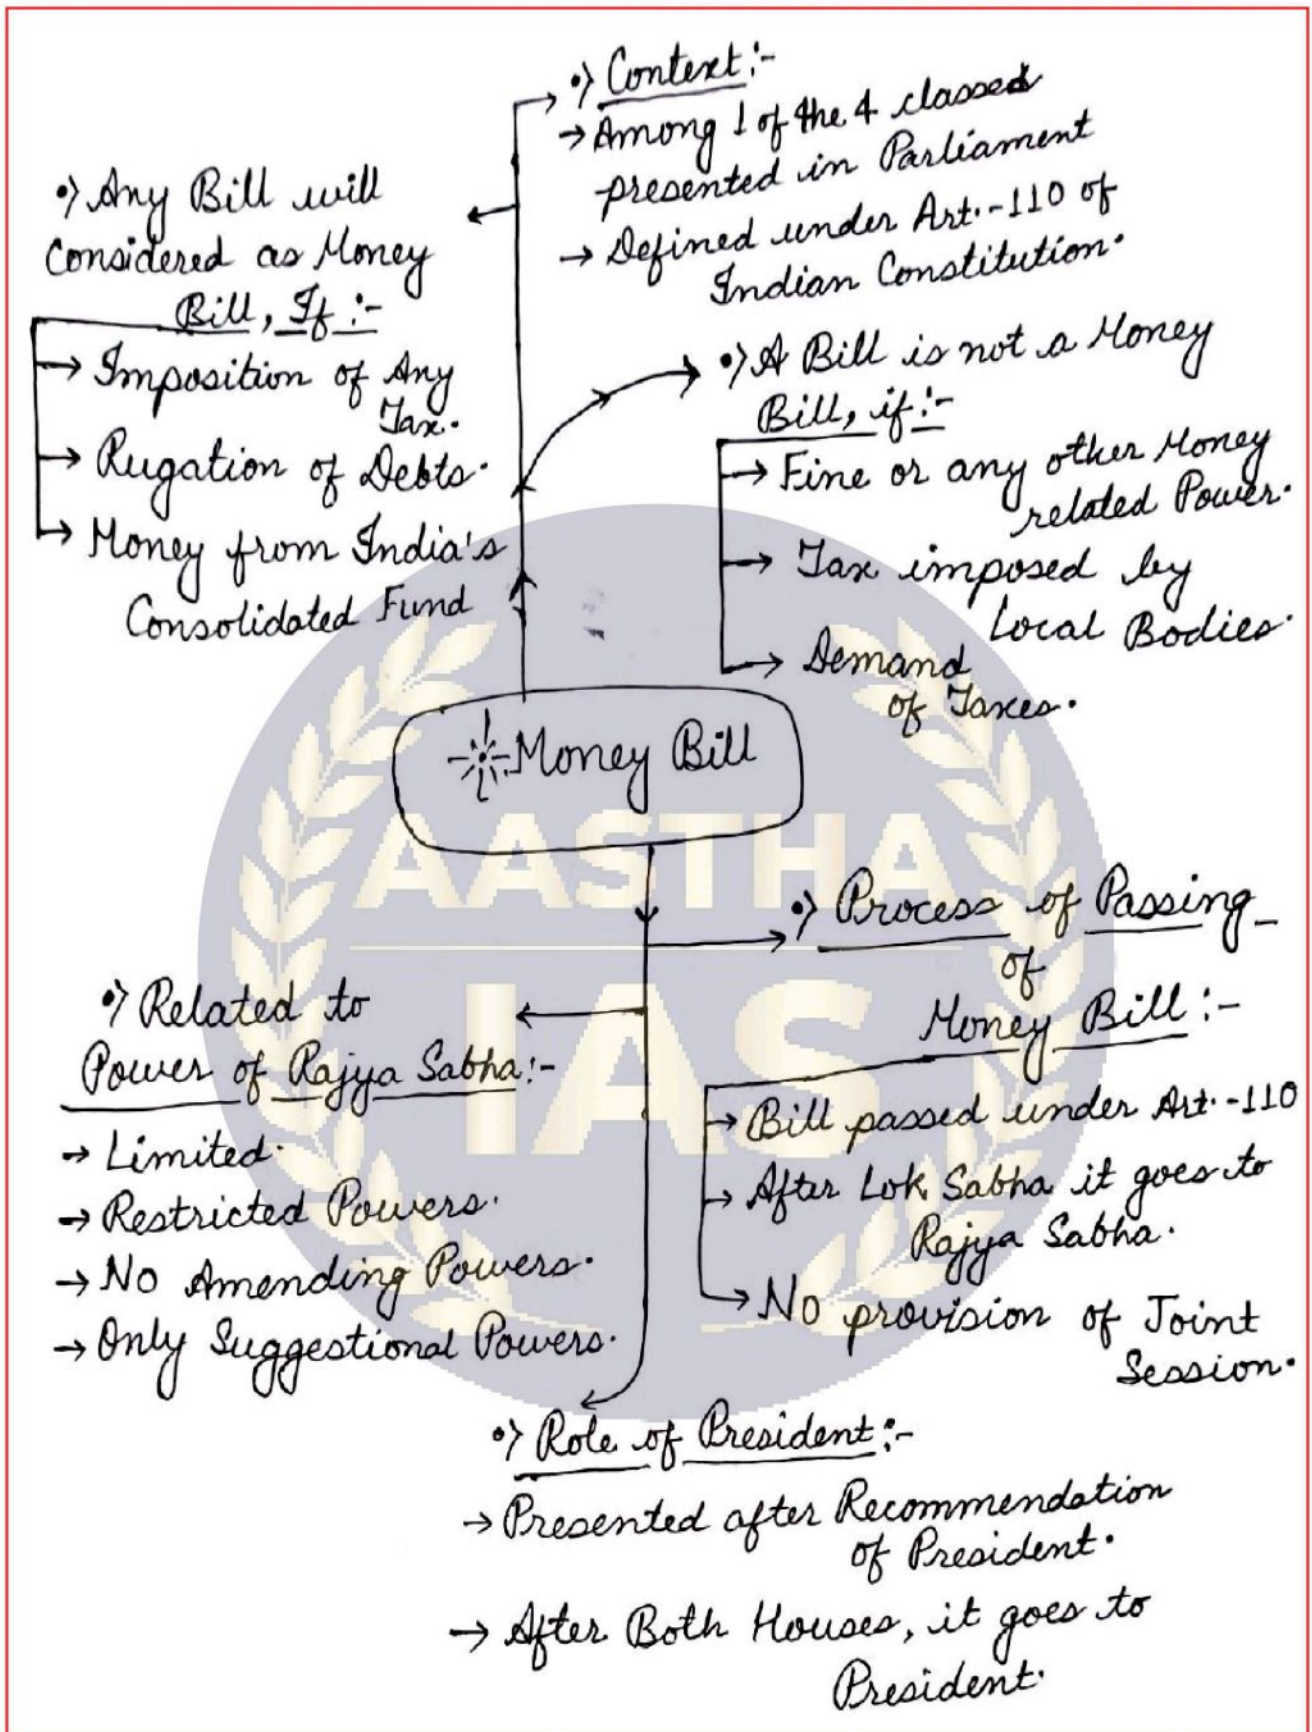 •) Context:-
→ Among 1 of the 4 classed
presented in Parliament
→ Defined under Art.-110 of
Indian Constitution.
•) Any Bill will
Considered as Money
Bill, If :-
→ Imposition of Any
Tax.
→ Rugation of Debts.
→ Money from India's
Consolidated Fund
•) A Bill is not a Money
Bill, if :-
→ Fine or any other Money
related Power.
→ Tax imposed by
Local Bodies.
→ Demand
of Taxes.
Money Bill
AASTHA
IAS
•) Process of Passing
of
Money Bill :-
→ Bill passed under Art.-110
→ After Lok Sabha it goes to
Rajya Sabha.
→ No provision of Joint
Session.
•) Related to
Power of Rajya Sabha:-
→ Limited.
→ Restricted Powers.
→ No Amending Powers.
→ Only Suggestional Powers.
•) Role of President :-
→ Presented after Recommendation
of President.
→ After Both Houses, it goes to
President.